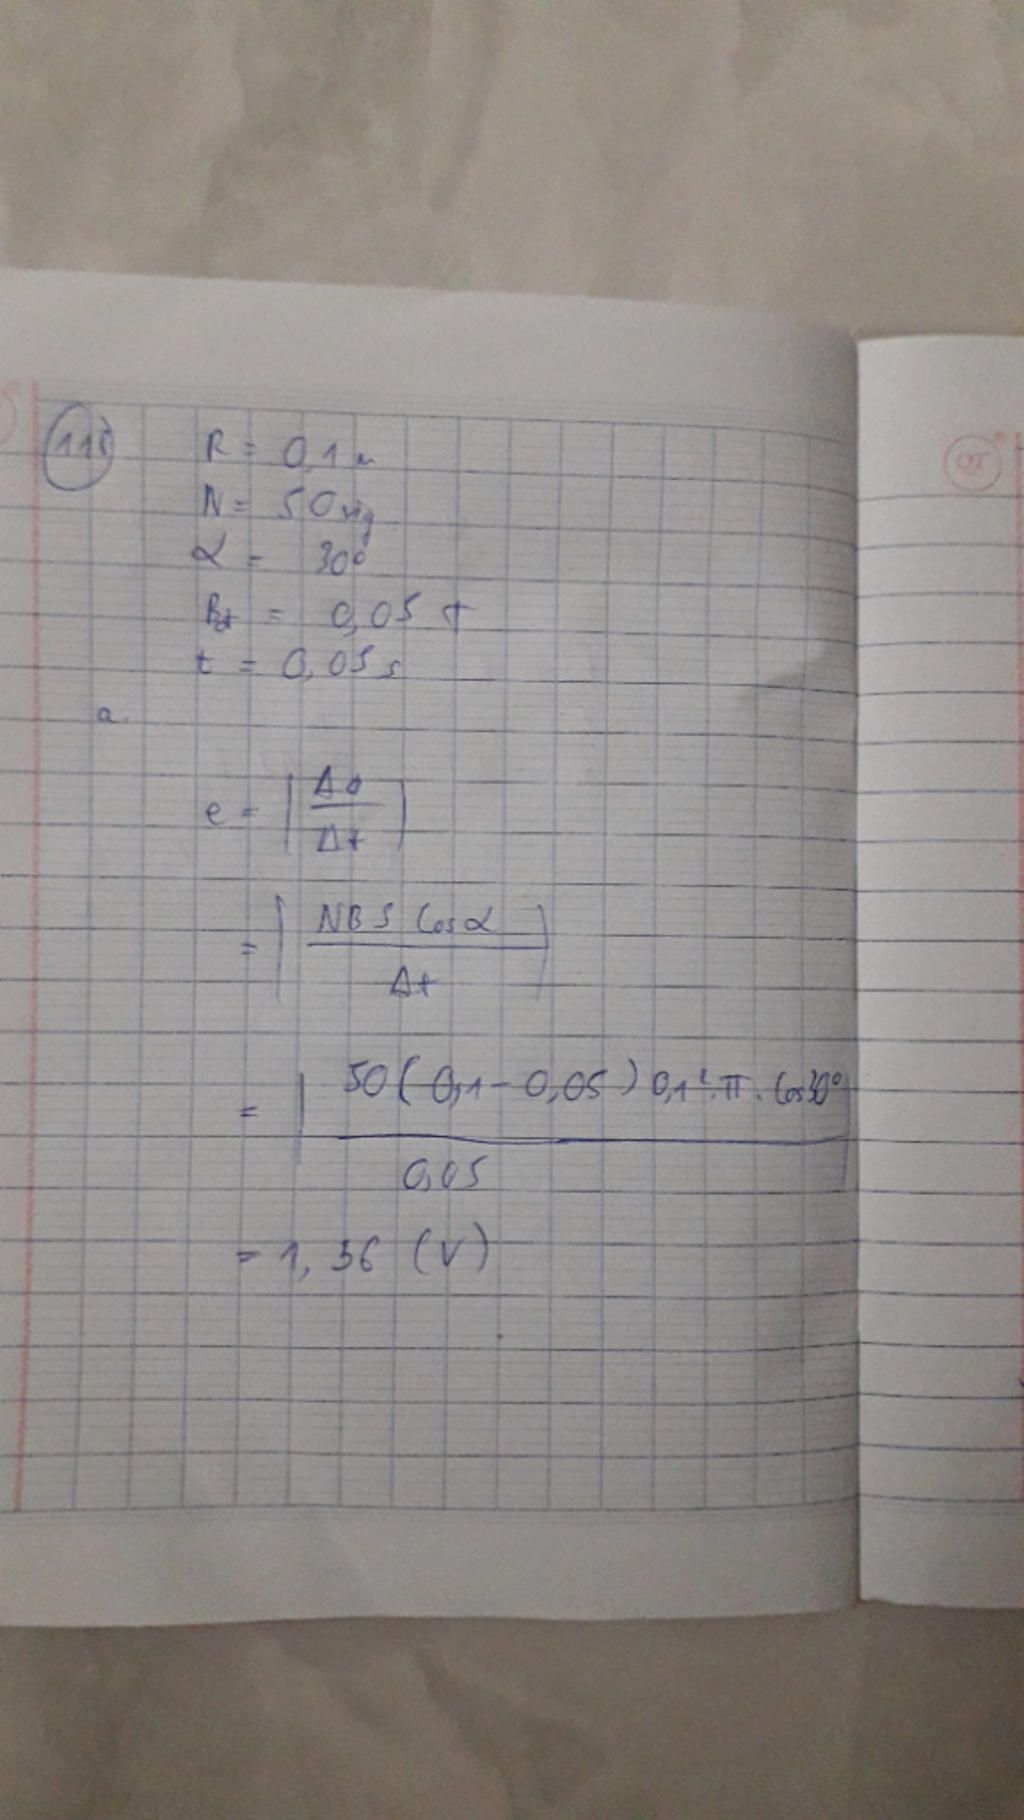 R = 0,1 m
N = 50 vg
α = 30°
= 0,05 T
t = 0,05 s
a.
e = | ΔΦ / Δt |
= | NBS Cos α / Δt |
= | 50 ( 0,1 - 0,05 ) 0,1² . π . Cos 30° / 0,05 |
= 1,36 (V)